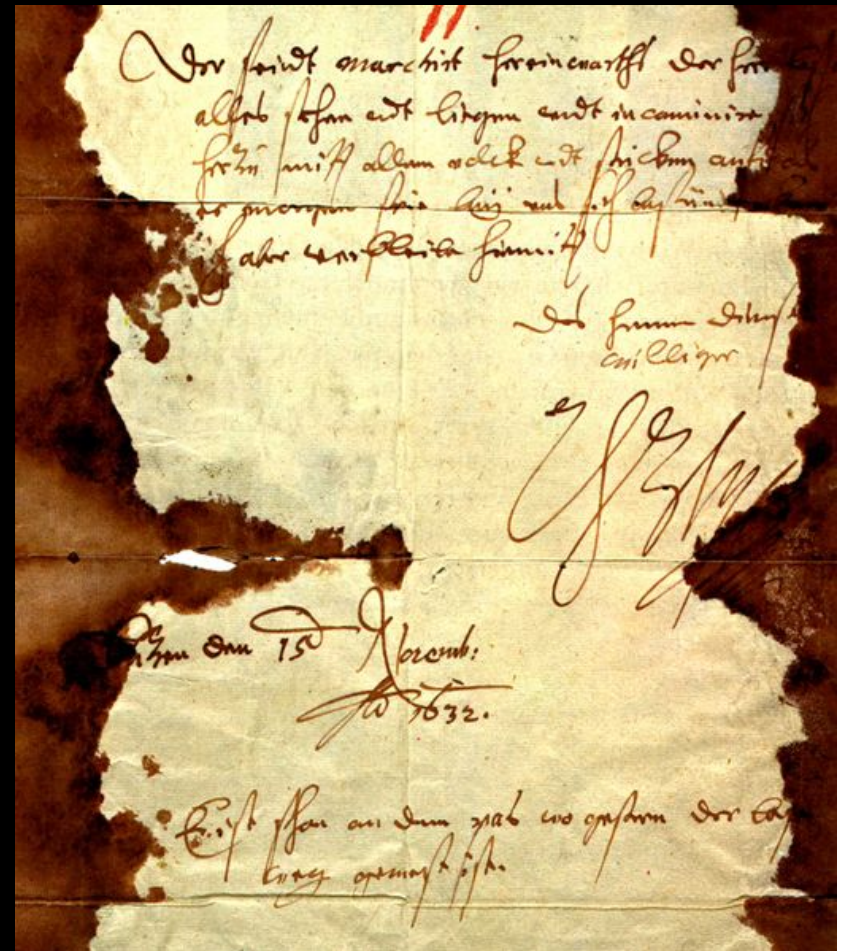 Der feindt marchirt hereinwarths der herr lasse
alles stehen undt liegen undt incaminire sich
herzu mitt allem volck undt stücken auf das
er morgen frue bey uns sich befünden kan
ich aber verbleibe hiemitt
Des herren dienst
williger
AHzM
Lützen den 15 Novemb:
Ao 1632.
Er ist schon an dem pas wo gestern der bose
weg gewest ist.